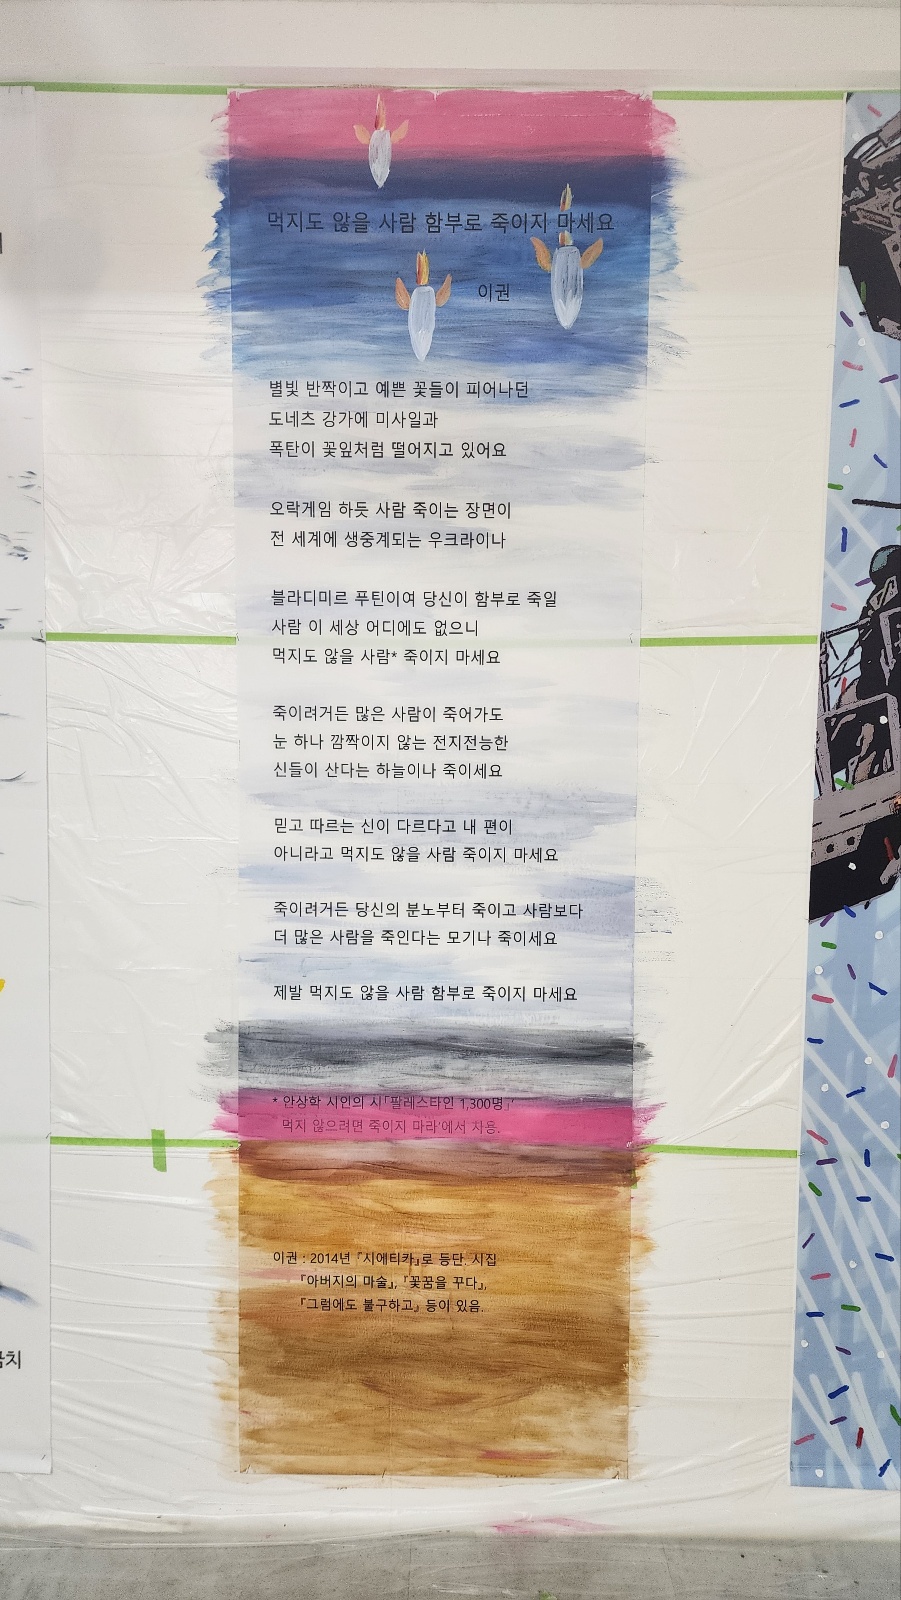 먹지도 않을 사람 함부로 죽이지 마세요
이권
별빛 반짝이고 예쁜 꽃들이 피어나던
도네츠 강가에 미사일과
폭탄이 꽃잎처럼 떨어지고 있어요
오락게임 하듯 사람 죽이는 장면이
전 세계에 생중계되는 우크라이나
블라디미르 푸틴이여 당신이 함부로 죽일
사람 이 세상 어디에도 없으니
먹지도 않을 사람* 죽이지 마세요
죽이려거든 많은 사람이 죽어가도
눈 하나 깜짝이지 않는 전지전능한
신들이 산다는 하늘이나 죽이세요
믿고 따르는 신이 다르다고 내 편이
아니라고 먹지도 않을 사람 죽이지 마세요
죽이려거든 당신의 분노부터 죽이고 사람보다
더 많은 사람을 죽인다는 모기나 죽이세요
제발 먹지도 않을 사람 함부로 죽이지 마세요
* 안상학 시인의 시「팔레스타인 1,300명」‘
먹지 않으려면 죽이지 마라’에서 차용.
이권 : 2014년 『시에티카』로 등단. 시집
『아버지의 마술』, 『꽃꿈을 꾸다』,
『그럼에도 불구하고』 등이 있음.